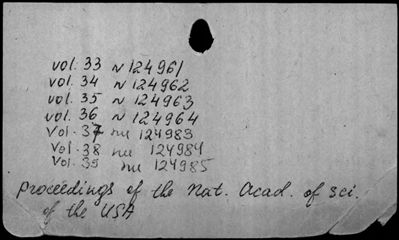 vol. 33 N 124961
vol. 34 N 124962
vol. 35 N 124963
vol. 36 N 124964
Vol. 37 nu 124983
Vol. 38 nu 124984
Vol. 39 nu 124985
proceedings of the Nat. Acad. of sci.
of the USA